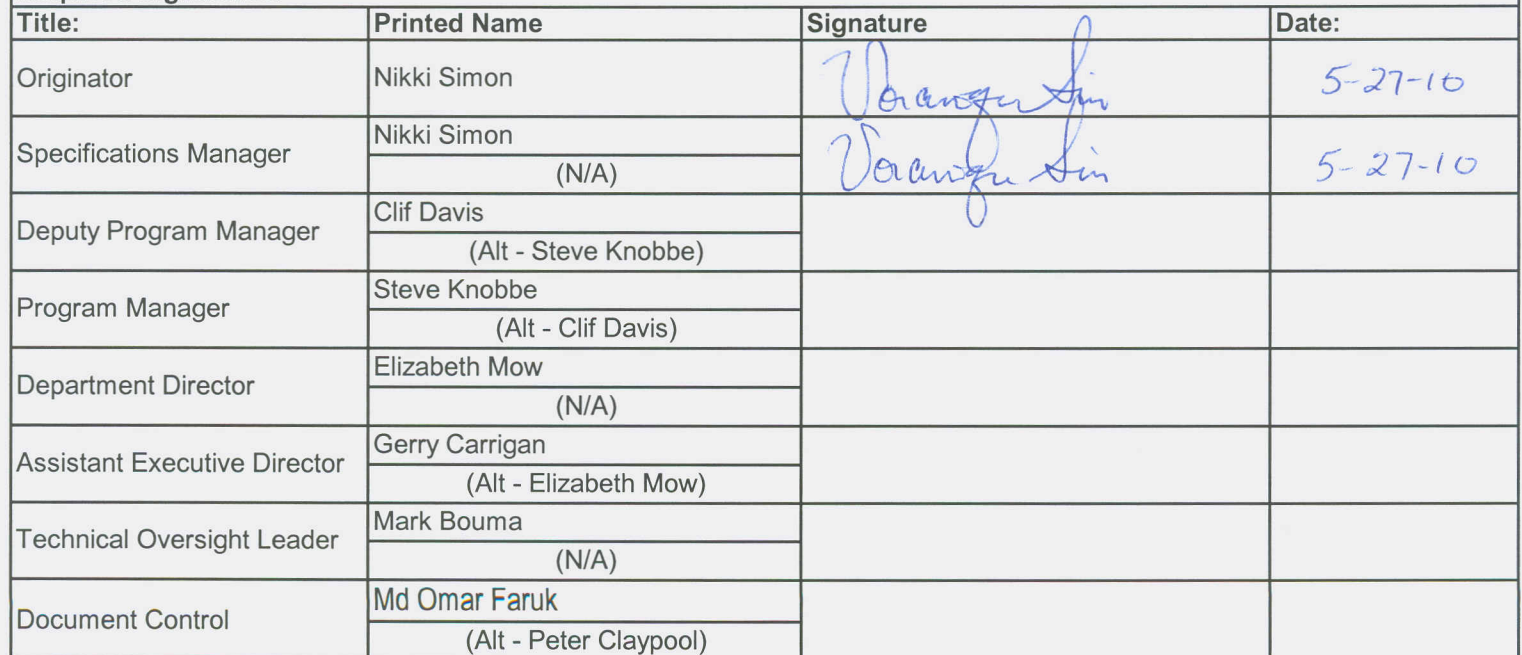 Title: Printed Name Signature Date:
Originator Nikki Simon 5-27-10
Specifications Manager Nikki Simon 5-27-10
(N/A)
Deputy Program Manager Clif Davis
(Alt - Steve Knobbe)
Program Manager Steve Knobbe
(Alt - Clif Davis)
Department Director Elizabeth Mow
(N/A)
Assistant Executive Director Gerry Carrigan
(Alt - Elizabeth Mow)
Technical Oversight Leader Mark Bouma
(N/A)
Document Control Md Omar Faruk
(Alt - Peter Claypool)